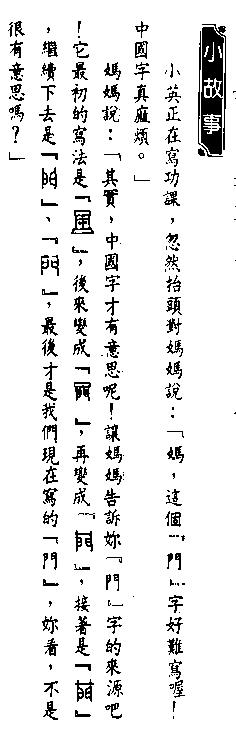 小故事
小英正在寫功課，忽然抬頭對媽媽說：「媽，這個『門』字好難寫喔！
中國字真麻煩。」
媽媽說：「其實，中國字才有意思呢！讓媽媽告訴妳『門』字的來源吧
！它最初的寫法是『』，後來變成『』，再變成『』，接著是『』
，繼續下去是『』、『』，最後才是我們現在寫的『門』，妳看，不是
很有意思嗎？」